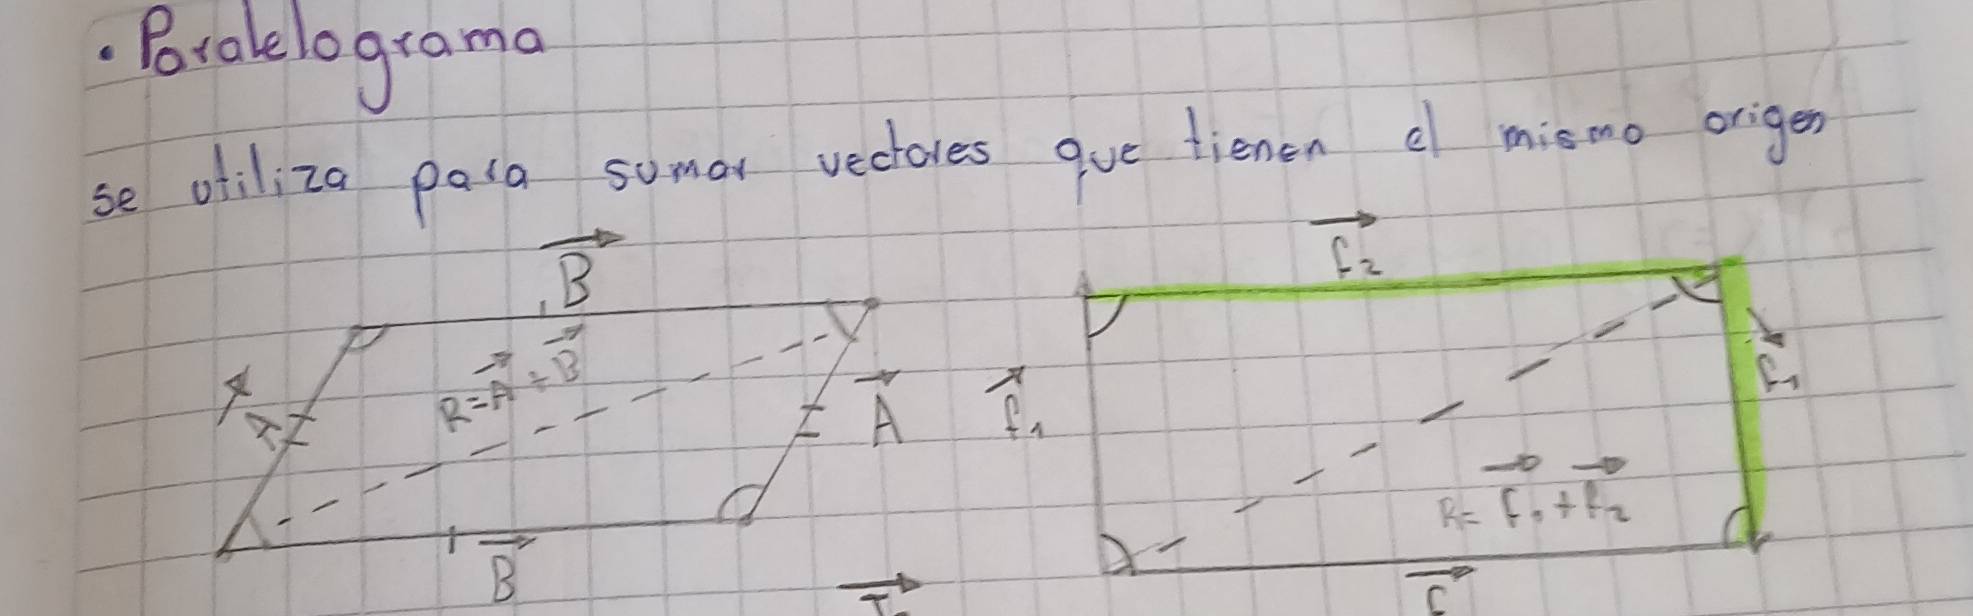 • Paralelograma
se utiliza para sumar vectores que tienen el mismo origen
B
f2
A
R=A+B
A
f1
f1
R= f1+f2
B